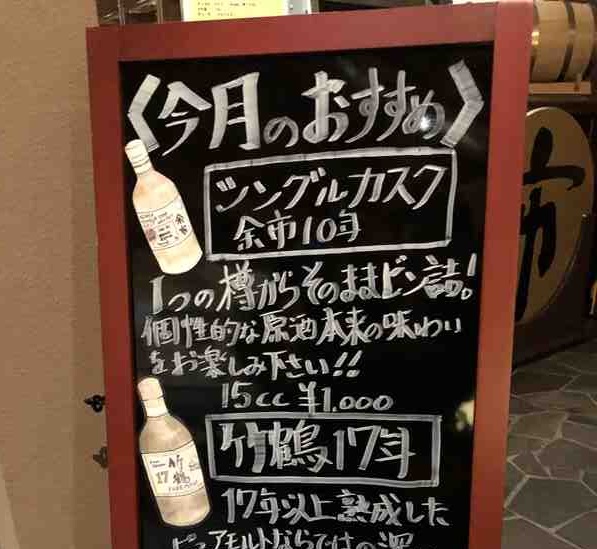 〈今月のおすすめ〉
シングルカスク
余市10年
1つの樽からそのままビン詰!
個性的な原酒本来の味わい
をお楽しみ下さい!!
15cc ¥1,000
竹鶴17年
17年以上熟成した
ピュアモルトならではの深
余市
竹鶴
17
市